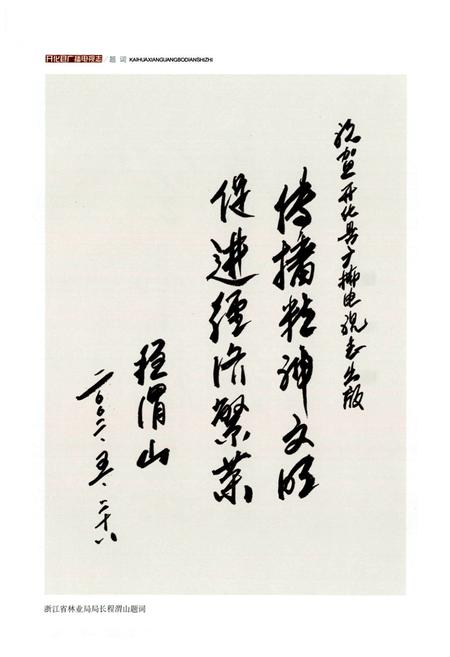 开化县广播电视志/题词 KAIHUAXIANGUANGBODIANSHIZHI
祝贺开化县广播电视志出版
传播精神文明
促进经济繁荣
程渭山
二〇〇二·五·二十八
浙江省林业局局长程渭山题词